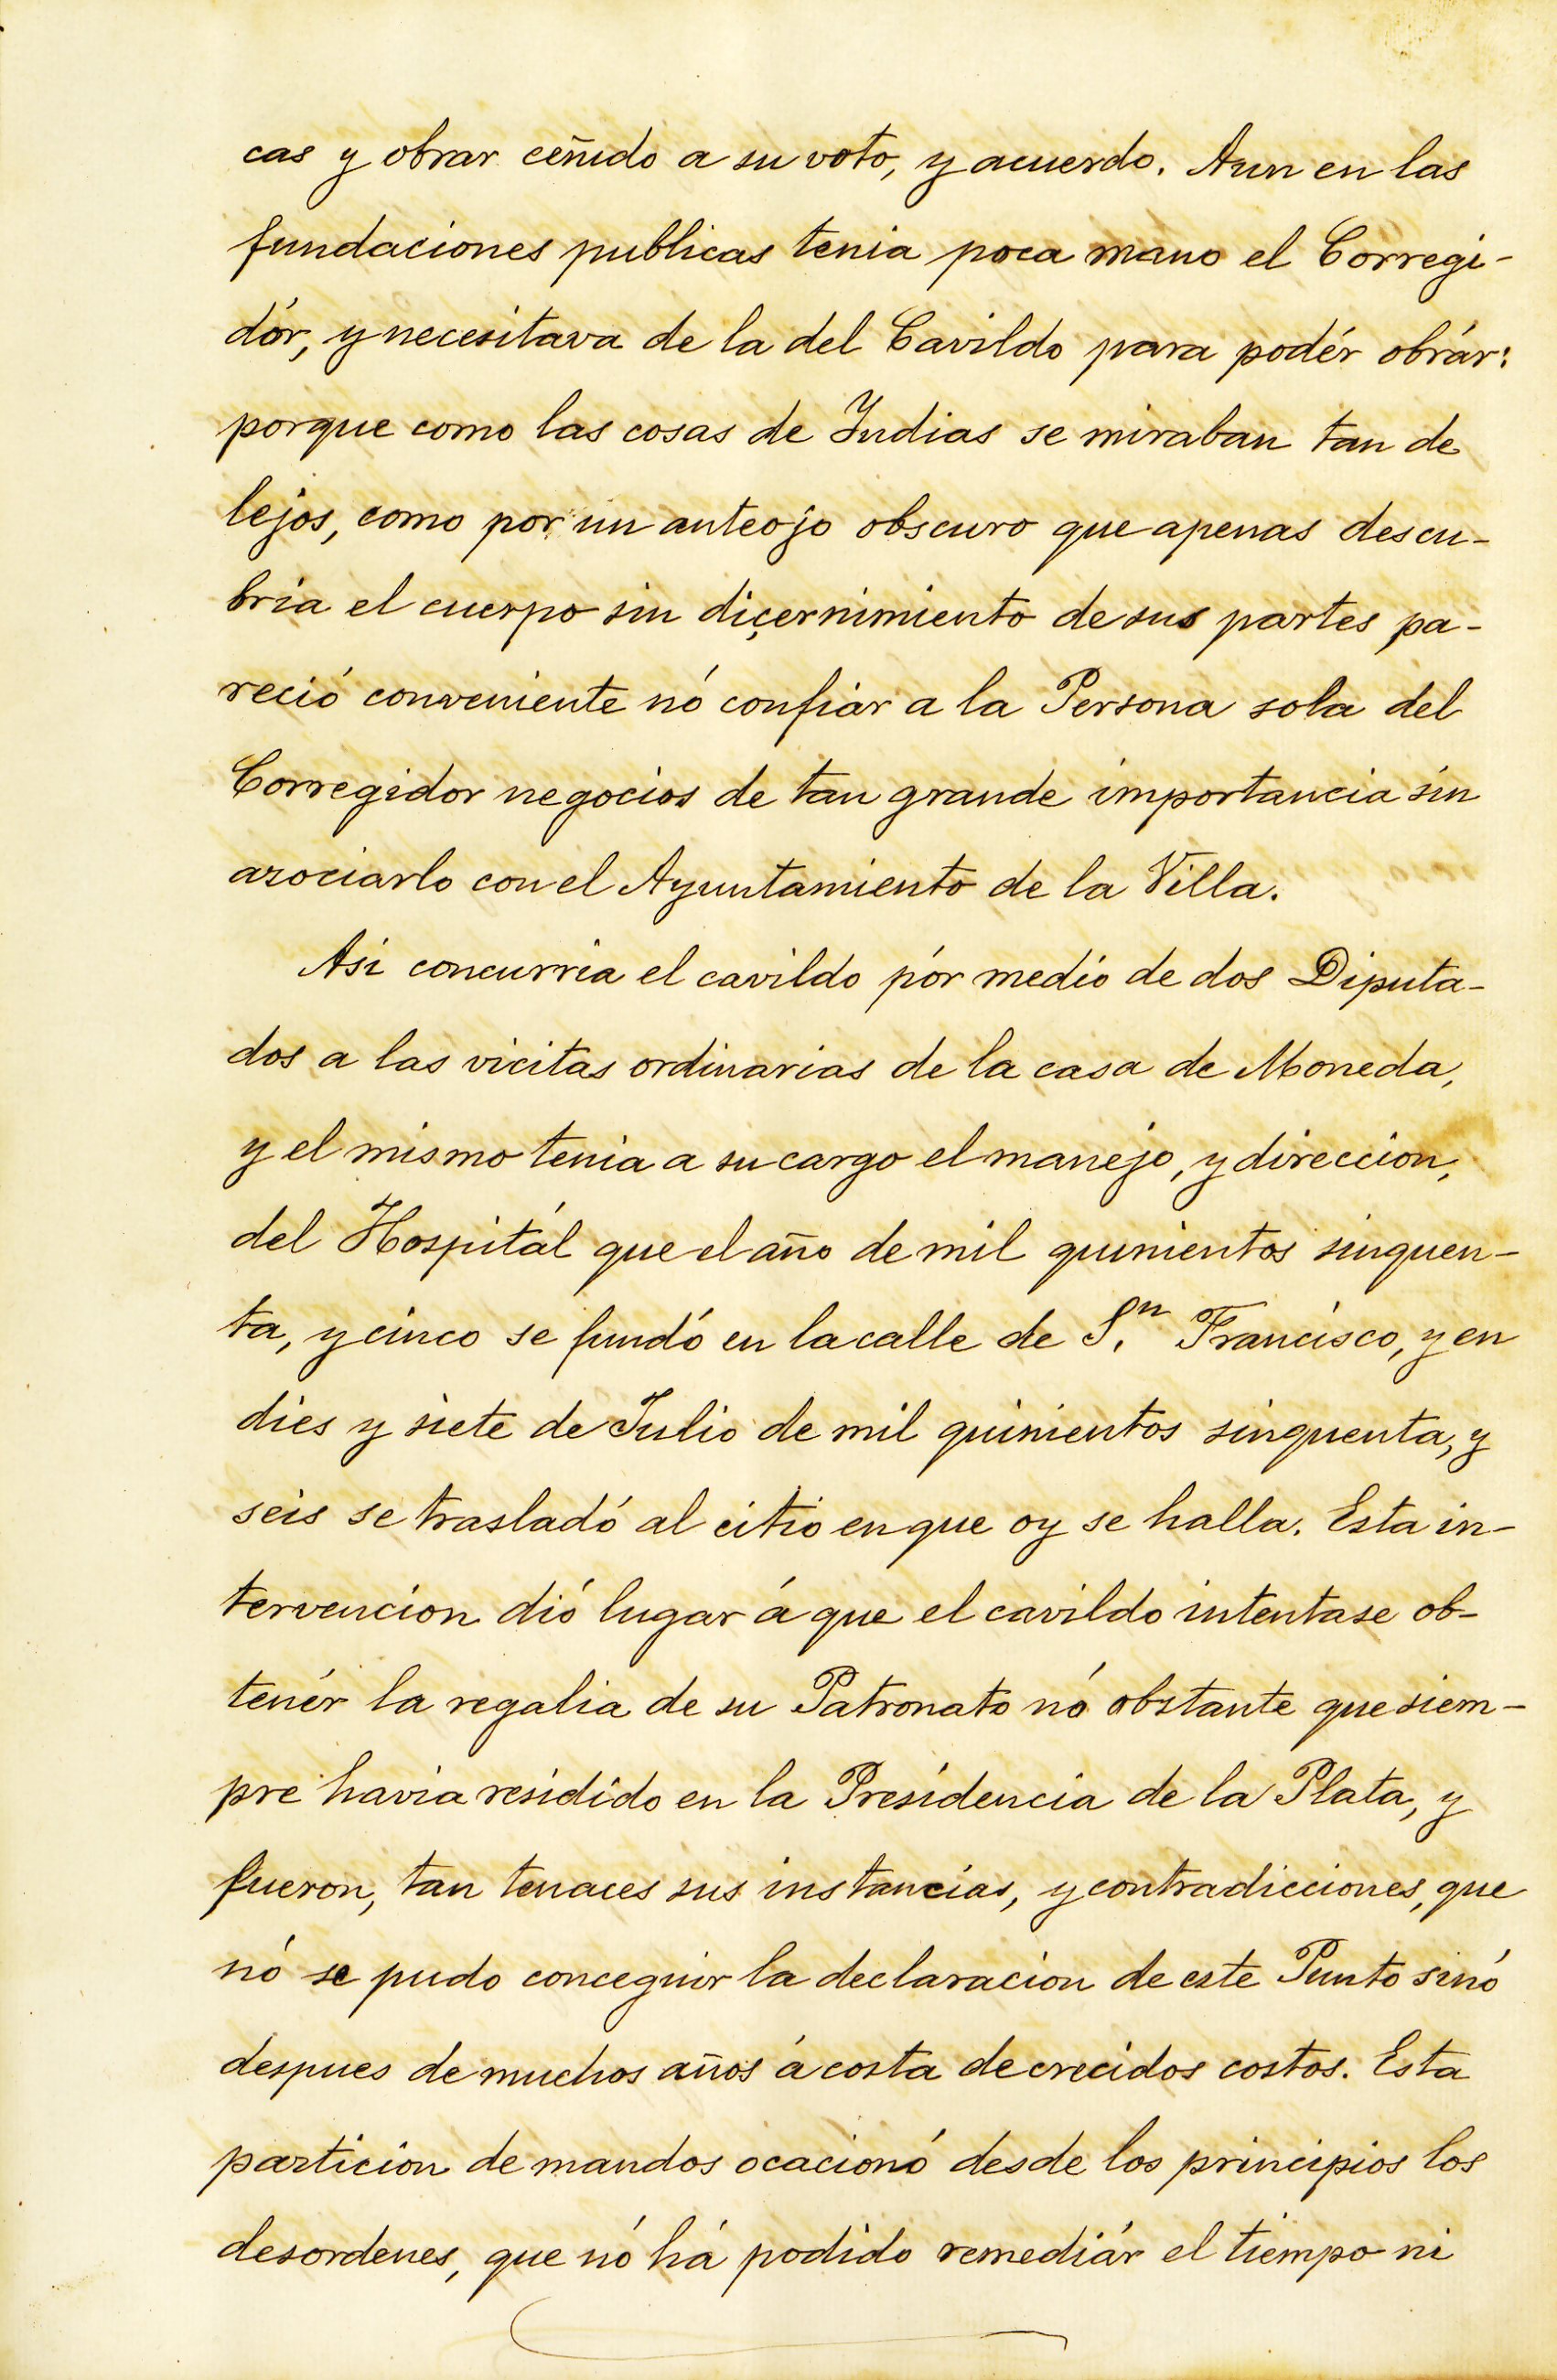 cas y obrar ceñido a su voto, y acuerdo. Aun en las
fundaciones publicas tenia poca mano el Corregi-
dór, y necesitava de la del Cavildo para podér obrár:
porque como las cosas de Indias se miraban tan de
lejos, como por un anteojo obscuro que apenas descu-
bria el cuerpo sin diçernimiento de sus partes pa-
reció conveniente nó confiar a la Persona sola del
Corregidor negocios de tan grande importancia sin
asociarlo con el Ayuntamiento de la Villa.
Asi concurria el cavildo pór medio de dos Diputa-
dos a las vicitas ordinarias de la casa de Moneda,
y el mismo tenia a su cargo el manejo, y direccion,
del Hospitál que el año de mil quinientos sinquen-
ta, y cinco se fundó en la calle de S.ⁿ Francisco, y en
dies y siete de Julio de mil quinientos sinquenta, y
seis se trasladó al citio en que oy se halla. Esta in-
tervencion dió lugar á que el cavildo intentase ob-
tenér la regalia de su Patronato nó obstante que siem-
pre havia residido en la Presidencia de la Plata, y
fueron, tan tenaces sus instancias, y contradicciones, que
nó se pudo conceguir la declaracion de este Punto sinó
despues de muchos años á costa de crecidos costos. Esta
particion de mandos ocacionó desde los principios los
desordenes, que nó há podido remediár el tiempo ni